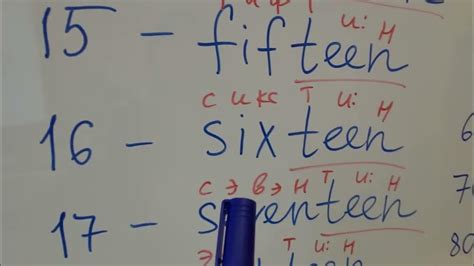 15 - fifteen
с и кс т и: н
16 - sixteen
с э в э н т и: н
17 - seventeen
т и: н